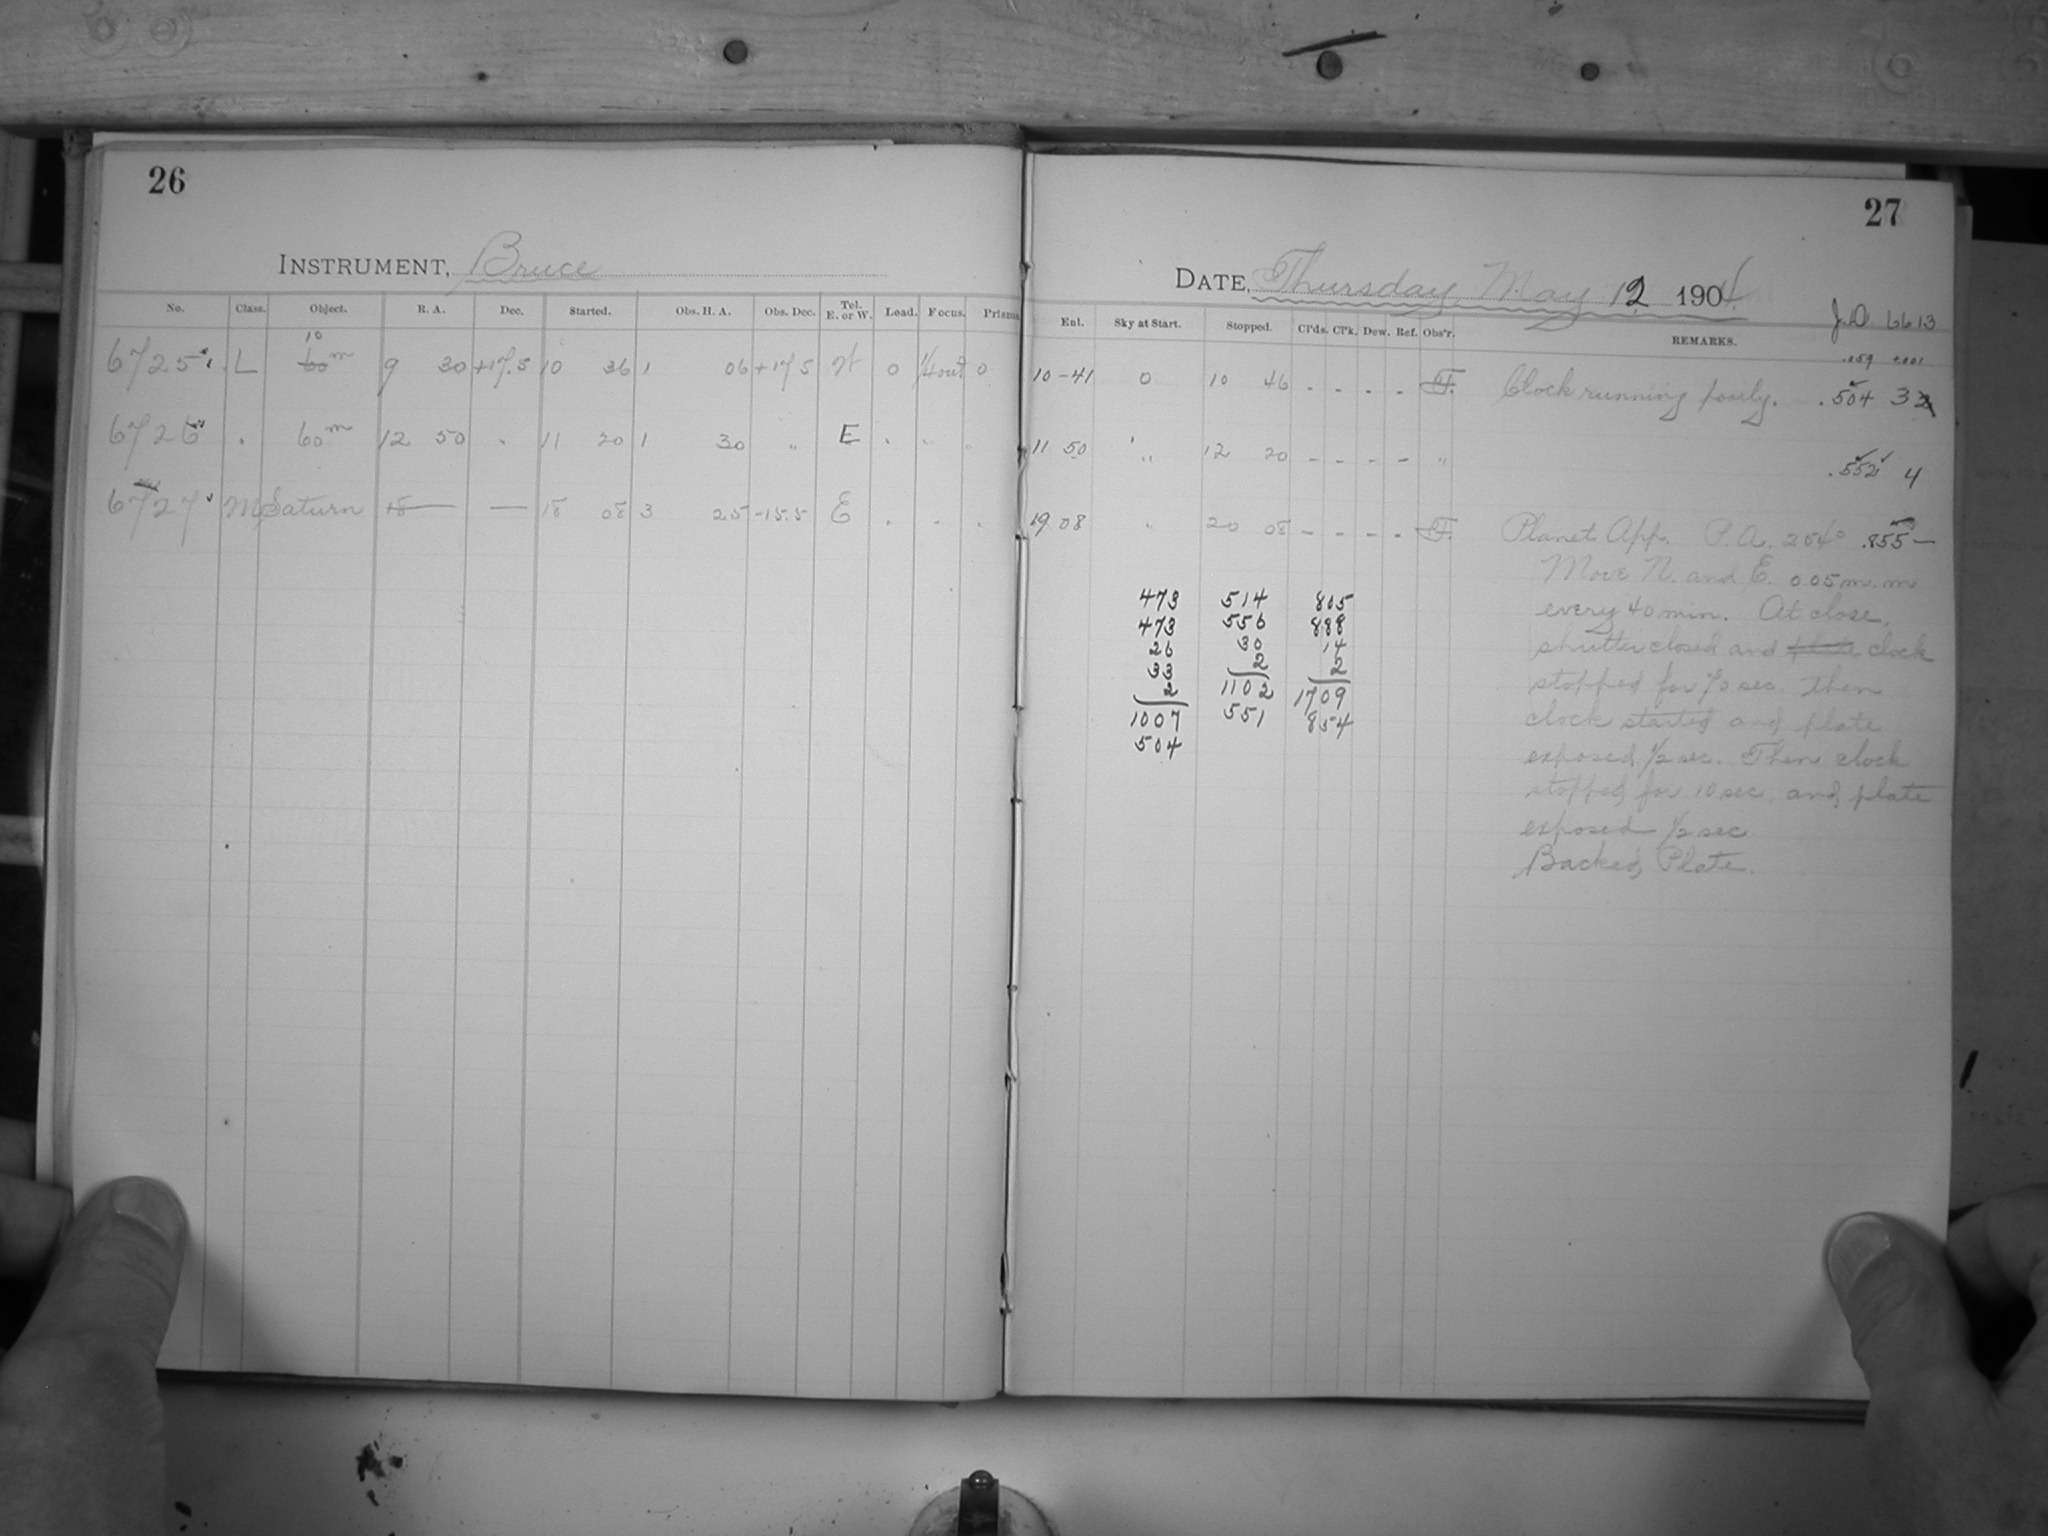 26
INSTRUMENT, Bruce
No. Class. Object. R. A. Dec. Started. Obs. H. A. Obs. Dec. Tel. E. or W. Load. Focus. Prisms
10
6725 L 60m 9 30 +17.5 10 36 1 06 +17 5 W 0 1/4 out 0
6726 " 60m 12 50 " 11 20 1 30 " E " " "
6727 M Saturn 18 — — 18 08 3 25 -15.5 E " " "
27
DATE, Thursday, May 12 1904
J.D. 6613
Ent. Sky at Start. Stopped. Cl'ds. Cl'k. Dew. Ref. Obs'r. REMARKS.
.059 +.001
10-41 0 10 46 - - - - F. Clock running poorly. .504 3
11 50 " 12 20 - - - - " .552 4
19 08 " 20 08 - - - - F. Planet App. P.A. 254° .855 —
Move N. and E. 0.05 m.m
every 40 min. At close,
shutter closed and plate clock
stopped for 70 sec. Then
clock started and plate
exposed 1/2 sec. Then clock
stopped for 10 sec. and plate
exposed 1/2 sec
Backed Plate.
473 514 805
473 556 888
26 30 14
33 2 2
2 1102 1709
1007 551 854
504